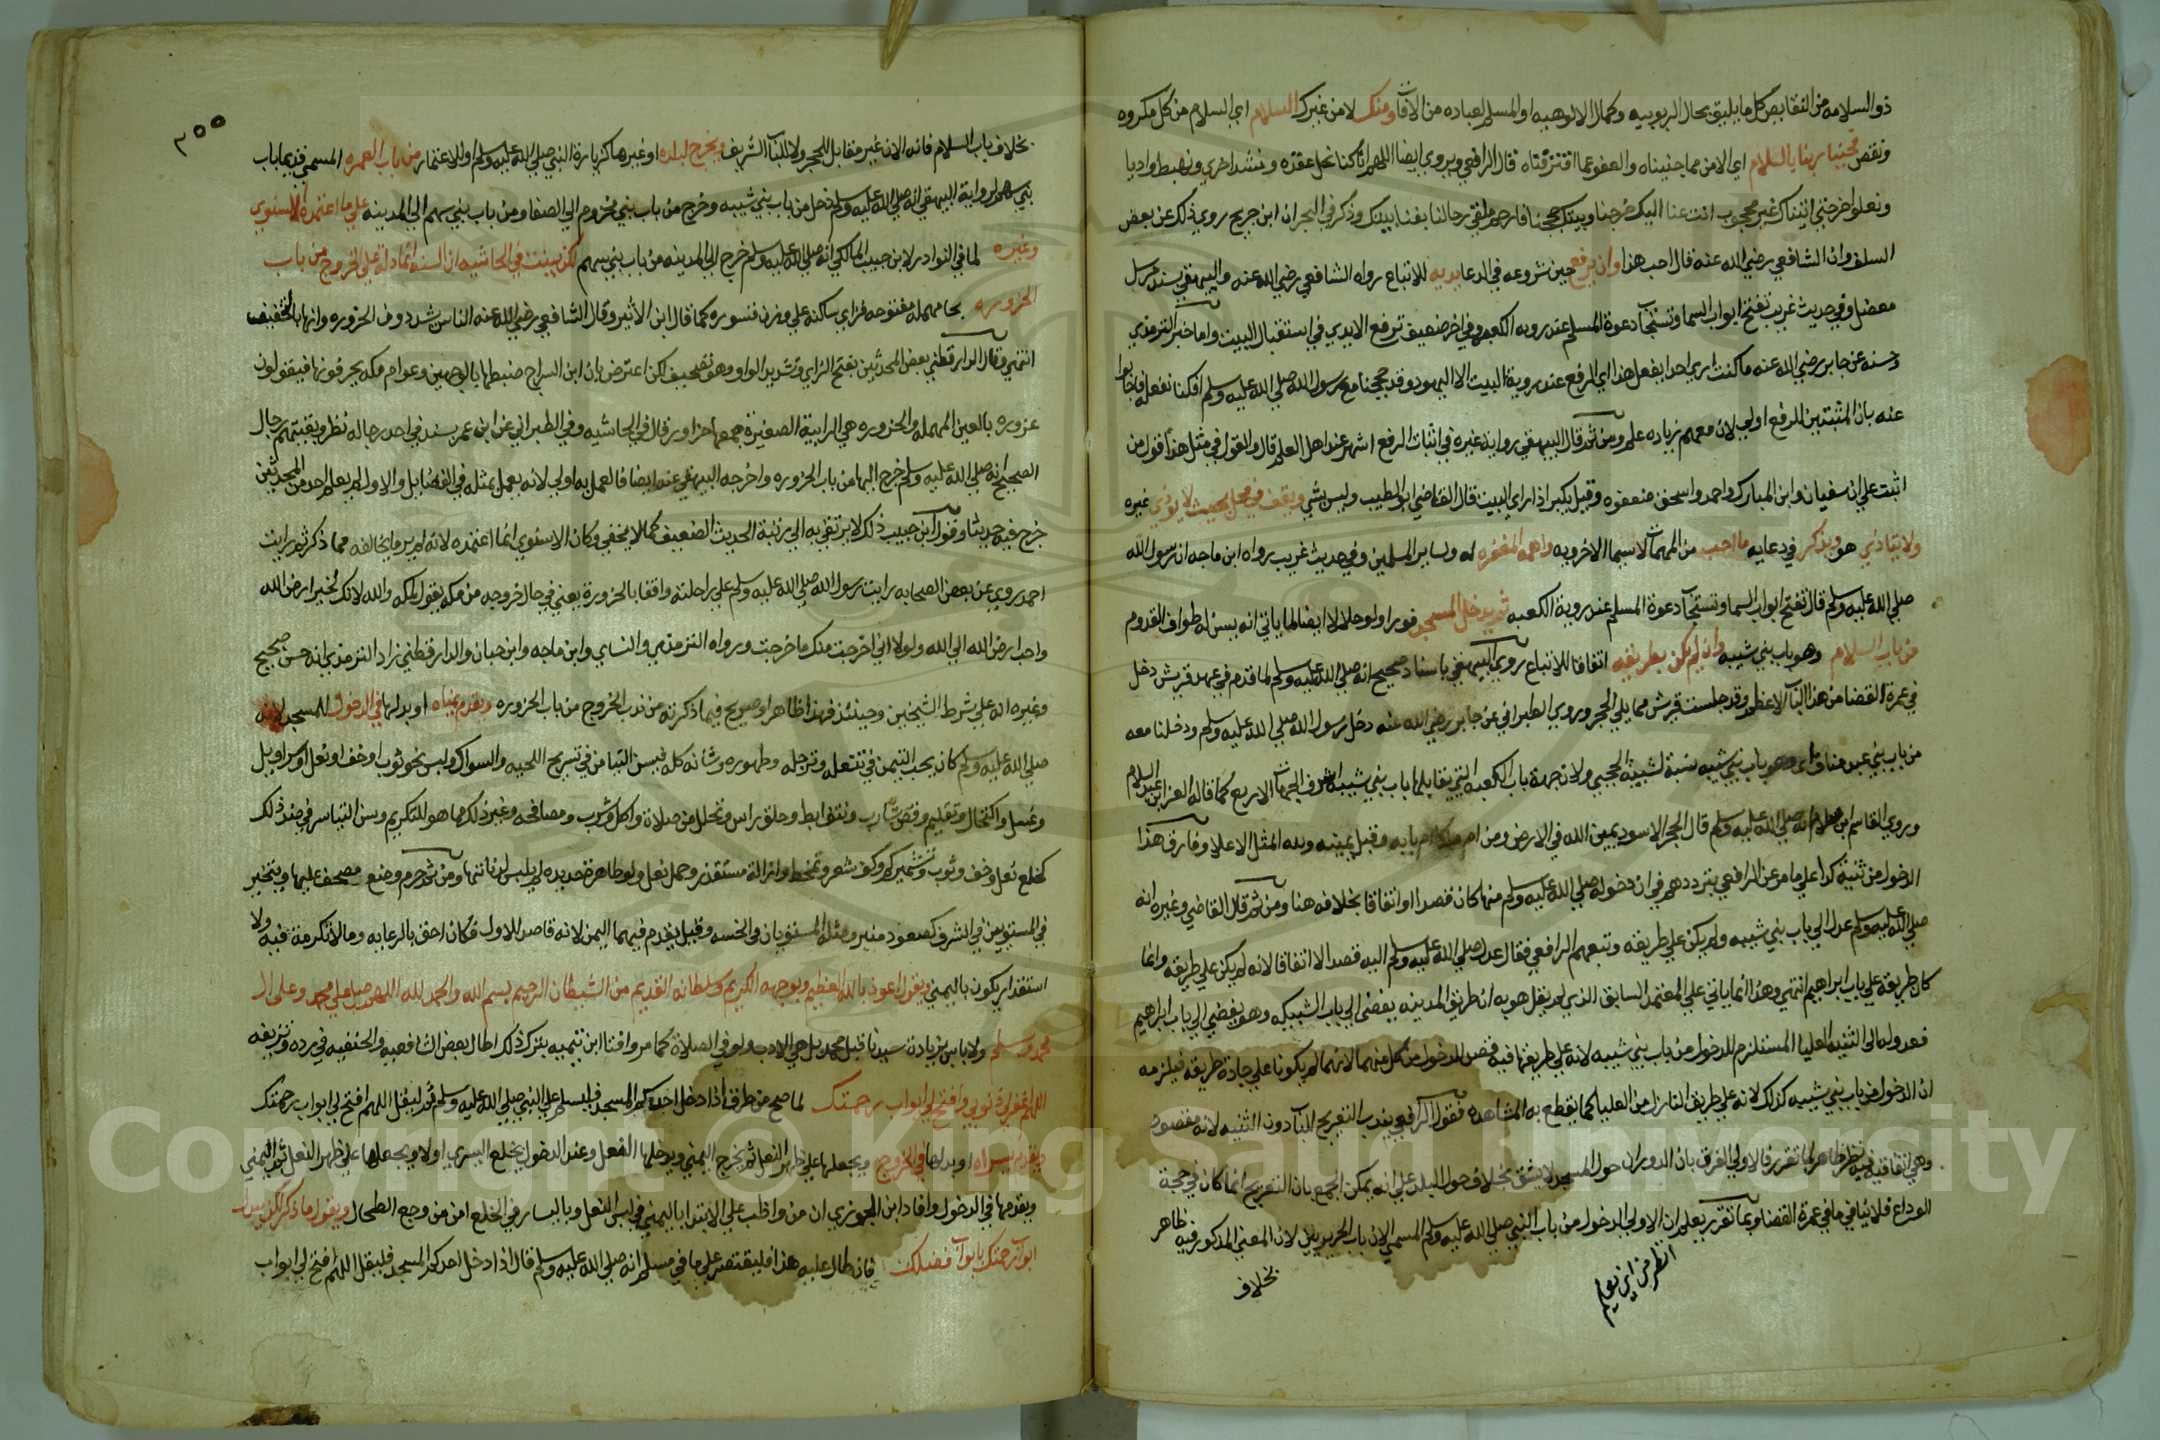 ذو السلامه من النقايص كل ما يليق بحال الربوبيه وكمال الالوهيه او المسلم لعباده من الافات ومنك لا من غيرك السلام اي السلام من كل مكروه
ونقص فحينا ربنا بالسلام اي الامن مما جنيناه والعفو عما اقترفناه قال الرافعي ويروي ايضا اللهم انا كنا نحل عقده ونشد اخري ونهبط واديا
ونعلو اخر حتي اتيناك غير محجوب انت عنا اليك خرجنا وبيتك حججنا فارحم ملقي رحالنا بفنا بيتك وذكر في البحر ان ابن جريج روي ذلك عن بعض
السلف وان الشافعي رضي الله عنه قال احب هذا وان يرفع حين شروعه في الدعا يديه للاتباع رواه الشافعي رضي الله عنه والبيهقي بسند مرسل
معضل وفي حديث غريب تفتح ابواب السما وتستجاب دعوة المسلم عند رويه الكعبه وفي اخر ضعيف ترفع الايدي في استقبال البيت واما خبر الترمذي
وحسنه عن جابر رضي الله عنه ما كنت اري احدا يفعل هذا اي الرفع عند روية البيت الا اليهود وقد حججنا مع رسول الله صلي الله عليه وسلم افكنا نفعله فاجابوا
عنه بان المثبتين للرفع اولي لان معهم زياده علم ومن ثم قال البيهقي رواية غيره في اثبات الرفع اشهر عند اهل العلم قال والقول في مثل هذا قول من
اثبت علي ان سفيان وابن المبارك واحمد واسحق ضعفوه وقيل يكبر اذا راي البيت قال القاضي ابو الطيب وليس بشي ويقف في محل بحيث لا يوذي غيره
ولا يتاذي هو ويذكر في دعايه ما احب من المهمات لاسيما الاخرويه واهمه المغفره له ولساير المسلمين وفي حديث غريب رواه ابن ماجه ان رسول الله
صلي الله عليه وسلم قال تفتح ابواب السما وتستجاب دعوة المسلم عند روية الكعبه ثم يدخل المسجد فورا ولو حلالا ايضا لما ياتي انه يسن له طواف القدوم
من باب السلام وهو باب بني شيبه وان لم يكن بطريقه اتفاقا للاتباع روي البيهقي باسناد صحيح انه صلي الله عليه وسلم لما قدم في عهد قريش دخل
في عمرة القضا من هذا الباب الاعظم وقد جلست قريش مما يلي الحجر وروي الطبراني عن جابر رضي الله عنه دخل رسول الله صلي لله عليه وسلم ودخلنا معه
من باب بني عبد مناف اي وهو باب بني شيبه نسبة لشيبة الحجبي ولان جهة باب الكعبه التي يقابلها باب بني شيبه اشرف الجهات الاربع كما قاله العز ابن عبد السلام
وروي القاسم ابن سلام انه صلي الله عليه وسلم قال الحجر الاسود يمين الله في الارض ومن ام ملكا ام بابه وقبل يمينه ولله المثل الاعلا وفارق هذا
الدخول من ثنية كدا علي ما مر عن الرافعي بترددهم في ان دخوله صلي الله عليه وسلم منها كان قصدا او اتفاقا بخلافه هنا ومن ثم قال القاضي وغيره انه
صلي الله عليه وسلم عدل الي باب بني شيبه ولم يكن علي طريقه وتبعهم الرافعي فقال عدل صلي الله عليه وسلم اليه قصدا لا اتفاقا لانه لم يكن علي طريقه وانما
كان طريقه علي باب ابراهيم انتهي وهذا انما ياتي علي المعتمد السابق الذي لم يقل هو به ان طريق المدينه يفضي الي باب الشبيكه وهو يفضي الي باب ابراهيم
فعدوله الي الثنية العليا المستلزم للدخول من باب بني شيبه لانه علي طريقها فيه قصد للدخول من كل منهما لانهما لم يكونا علي جادة طريقه فيلزمه
ان الدخول من باب بني شيبه كذلك لانه علي طريق النازل من العليا كما يقطع به المشاهده فقول الرافعي يندب التعريج للباب دون الثنيه لانه مقصود
وهي اتفاقيه فيه نظر ظاهر لما تقرر فالاولي الفرق بان الدوران حول المسجد لا يشق بخلاف حول البلد علي انه يمكن الجمع بان التعريج انما كان في حجة
الوداع فلا ينافي ما في عمرة القضا وبما تقرر يعلم ان الاولي الدخول من باب النبي صلي الله عليه وسلم المسمي الان باب الحريريين لان المعني المذكور فيه ظاهر
بخلاف
٢٥٥
بخلاف باب السلام فانه الان غير مقابل للحجر ولا للباب الشريف ويخرج لبلده او غيرها كزيارة النبي صلي الله عليه وسلم او للاعتمار من باب العمره المسمي قديما باب
بني سهم لرواية البيهقي انه صلي الله عليه وسلم دخل من باب بني شيبه وخرج من باب بني مخزوم الي الصفا ومن باب بني سهم الي المدينه علي ما اعتمده الاسنوي
وغيره لما في النوادر لابن حبيب المالكي انه صلي الله عليه وسلم خرج الي المدينه من باب بني سهم لكن بينت في الحاشيه ان السنه انما دلت علي الخروج من باب
الحزوره بحا مهمله مفتوحه فزاي ساكنه علي وزن قسوره كما قال ابن الاثير وقال الشافعي رضي الله عنه الناس يشددون الحزوره وانها بالتخفيف
انتهي وقال الدارقطني بعض المحدثين بفتح الزاي وتشديد الواو وهو تصحيف لكن اعترض بان ابن السراج ضبطها بالوجهين وعوام مكه يحرفونها فيقولون
عزوره بالعين المهمله والحزوره هي الرابية الصغيرة جمعها حزاور قال في الحاشيه وفي الطبراني عن ابن عمر بسند في احد رجاله نظر وبقيتهم رجال
الصحيح انه صلي الله عليه وسلم خرج اليها من باب الحزوره واخرجه البيهقي عنه ايضا فالعمل به اولي لانه يعمل بمثله في الفضايل والاول لم يعلم احد من المحدثين
خرج فيه حديثا وقول ابن حبيب ذلك لا يرتقي به الي رتبة الحديث الضعيف كما لا يخفي وكان الاسنوي انما اعتمده لانه لم ير ما يخالفه مما ذكر ثم رايت
احمد روي عن بعض الصحابه رايت رسول الله صلي الله عليه وسلم علي راحلته واقفا بالحزورة يعني في حال خروجه من مكه يقول لمكه والله لانك لخير ارض الله
واحب ارض الله الي الله ولولا اني اخرجت منك ما خرجت ورواه الترمذي والنساي وابن ماجه وابن حبان والدارقطني زاد الترمذي انه حسن صحيح
وغيره انه علي شرط الشيخين وحينئذ فهذا ظاهر او صريح فيما ذكرته من ندب الخروج من باب الحزوره ويقدم يمناه او بدلها في الدخول للمسجد لانه
صلي الله عليه وسلم كان يحب التيمن في تنعله وترجله وطهوره وشانه كله فيسن التيامن في تسريح اللحيه والسواك ولبس نحو ثوب او خف او نعل او سراويل
وغسل واكتحال وتقليم وقص شارب ونتف ابط وحلق راس وتحلل من صلاة واكل وشرب ومصافحه وغير ذلك مما هو للتكريم ويسن التياسر في ضد ذلك
كخلع نعل وخف وثوب وشعر وتمخط وازالة مستقذر وحمل نعل ولو طاهرة ضد يده ومن ثم حرم وضع مصحف عليها ويتخير
في المستويين في الشرف كصعود منبر ومثله المستويان في الخسه وقيل يقدم فيهما اليمن لانه قاصد للاول فكان احق بالرعايه وما لا تكرمة فيه ولا
استقذار يكون باليمني ويقول اعوذ بالله العظيم وبوجهه الكريم وسلطانه القديم من الشيطان الرجيم بسم الله والحمد لله اللهم صل علي محمد وعلي ال
محمد وسلم ولا باس بزيادة سيدنا قبل محمد بل هي الادب ولو في الصلاة كما مر وافتا ابن تيميه بترك ذلك اطال بعض الشافعيه والحنفيه في رده وتزييفه
اللهم اغفر لي ذنوبي وافتح لي ابواب رحمتك لما صح من طرق اذا دخل احدكم المسجد فليسلم علي النبي صلي الله عليه وسلم ثم ليقل اللهم افتح لي ابواب رحمتك
ويقدم يسراه او بدلها في الخروج ويجعلها علي ظهر النعل ثم يخرج اليمني ويدخلها النعل وعند الدخول يخلع اليسري اولا ويجعلها علي ظهر النعل ثم اليمني
ويقدمها في الدخول وافاد ابن الجوزي ان من واظب علي الابتدا باليمني في لبس النعل وباليسار في الخلع امن من وجع الطحال ويقول ما ذكر لكن يبدل
ابواب رحمتك بابواب فضلك فان طال عليه هذا فليقتصر علي ما في مسلم انه صلي الله عليه وسلم قال اذا دخل احدكم المسجد فليقل اللهم افتح لي ابواب
Copyright © King Saud University